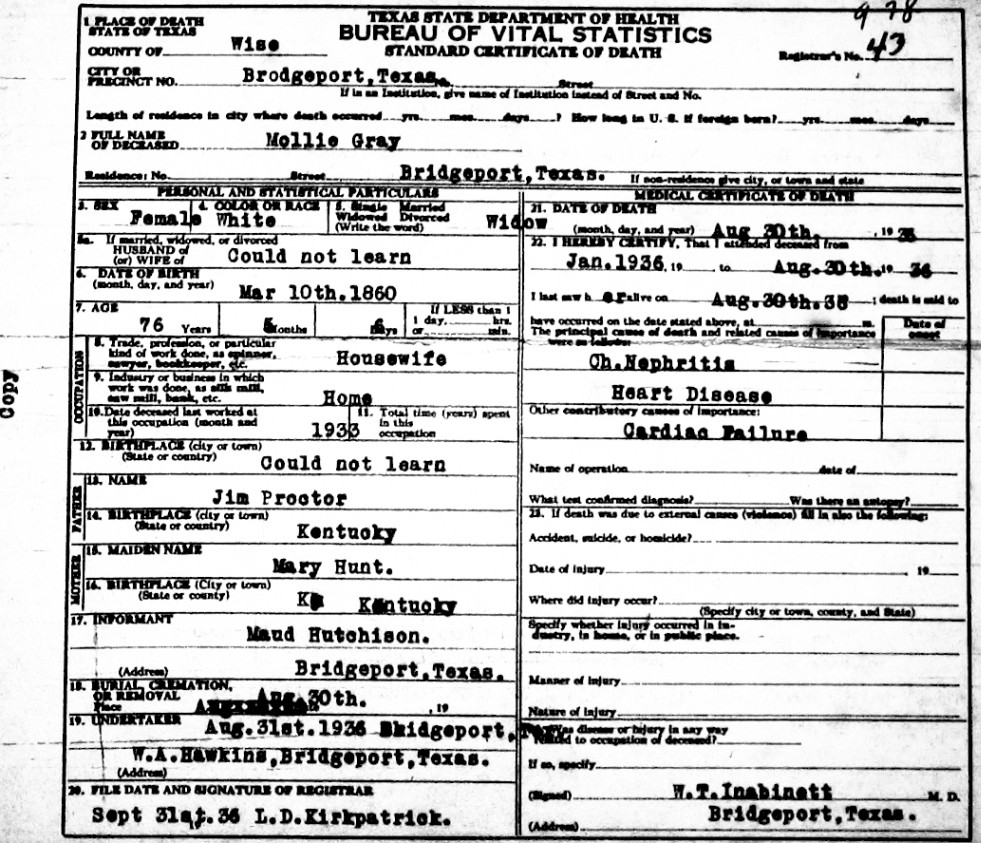 9 78
TEXAS STATE DEPARTMENT OF HEALTH
BUREAU OF VITAL STATISTICS
STANDARD CERTIFICATE OF DEATH
Registrar's No. 43
1 PLACE OF DEATH
STATE OF TEXAS
COUNTY OF Wise
CITY OR PRECINCT NO. Brodgeport, Texas. Street
If in an Institution, give name of Institution instead of Street and No.
Length of residence in city where death occurred yrs. mos. days ? How long in U. S. if foreign born? yrs. mos. days
2 FULL NAME OF DECEASED Mollie Gray
Residence: No. Street Bridgeport, Texas. If non-residence give city, or town and state
PERSONAL AND STATISTICAL PARTICULARS
3. SEX Female
4. COLOR OR RACE White
5. Single Married Widowed Divorced (Write the word) Widow
5a. If married, widowed, or divorced
HUSBAND of
(or) WIFE of Could not learn
6. DATE OF BIRTH
(month, day, and year) Mar 10th.1860
7. AGE
76 Years 5 Months Days
If LESS than 1
1 day, hrs.
or min.
OCCUPATION
8. Trade, profession, or particular
kind of work done, as spinner,
sawyer, bookkeeper, etc. Housewife
9. Industry or business in which
work was done, as silk mill,
saw mill, bank, etc. Home
10. Date deceased last worked at
this occupation (month and
year) 1933
11. Total time (years) spent
in this
occupation
12. BIRTHPLACE (city or town)
(State or country) Could not learn
FATHER
13. NAME
Jim Proctor
14. BIRTHPLACE (city or town)
(State or country) Kentucky
MOTHER
15. MAIDEN NAME
Mary Hunt.
16. BIRTHPLACE (City or town)
(State or county) Kentucky
17. INFORMANT
Maud Hutchison.
(Address) Bridgeport, Texas.
18. BURIAL, CREMATION,
OR REMOVAL
Place Aug.30th. , 19
19. UNDERTAKER Aug.31st.1936 Bridgeport,
W.A.Hawkins, Bridgeport, Texas.
(Address)
20. FILE DATE AND SIGNATURE OF REGISTRAR
Sept 31st.36 L.D.Kirkpatrick.
MEDICAL CERTIFICATE OF DEATH
21. DATE OF DEATH
(month, day, and year) Aug 30th. , 19
22. I HEREBY CERTIFY, That I attended deceased from
Jan.1936, 19 to Aug.30th. 19 36
I last saw h er alive on Aug.30th. ; death is said to
have occurred on the date stated above, at m.
The principal cause of death and related causes of importance
were as follows:
Date of
onset
Ch.Nephritis
Heart Disease
Other contributory causes of importance:
Cardiac Failure
Name of operation date of
What test confirmed diagnosis? Was there an autopsy?
23. If death was due to external causes (violence) fill in also the following:
Accident, suicide, or homicide?
Date of injury , 19
Where did injury occur?
(Specify city or town, county, and State)
Specify whether injury occurred in in-
dustry, in home, or in public place.
Manner of injury
Nature of injury
Was disease or injury in any way
related to occupation of deceased?
If so, specify
(Signed) W.T.Inabinett M. D.
(Address) Bridgeport, Texas.
Copy